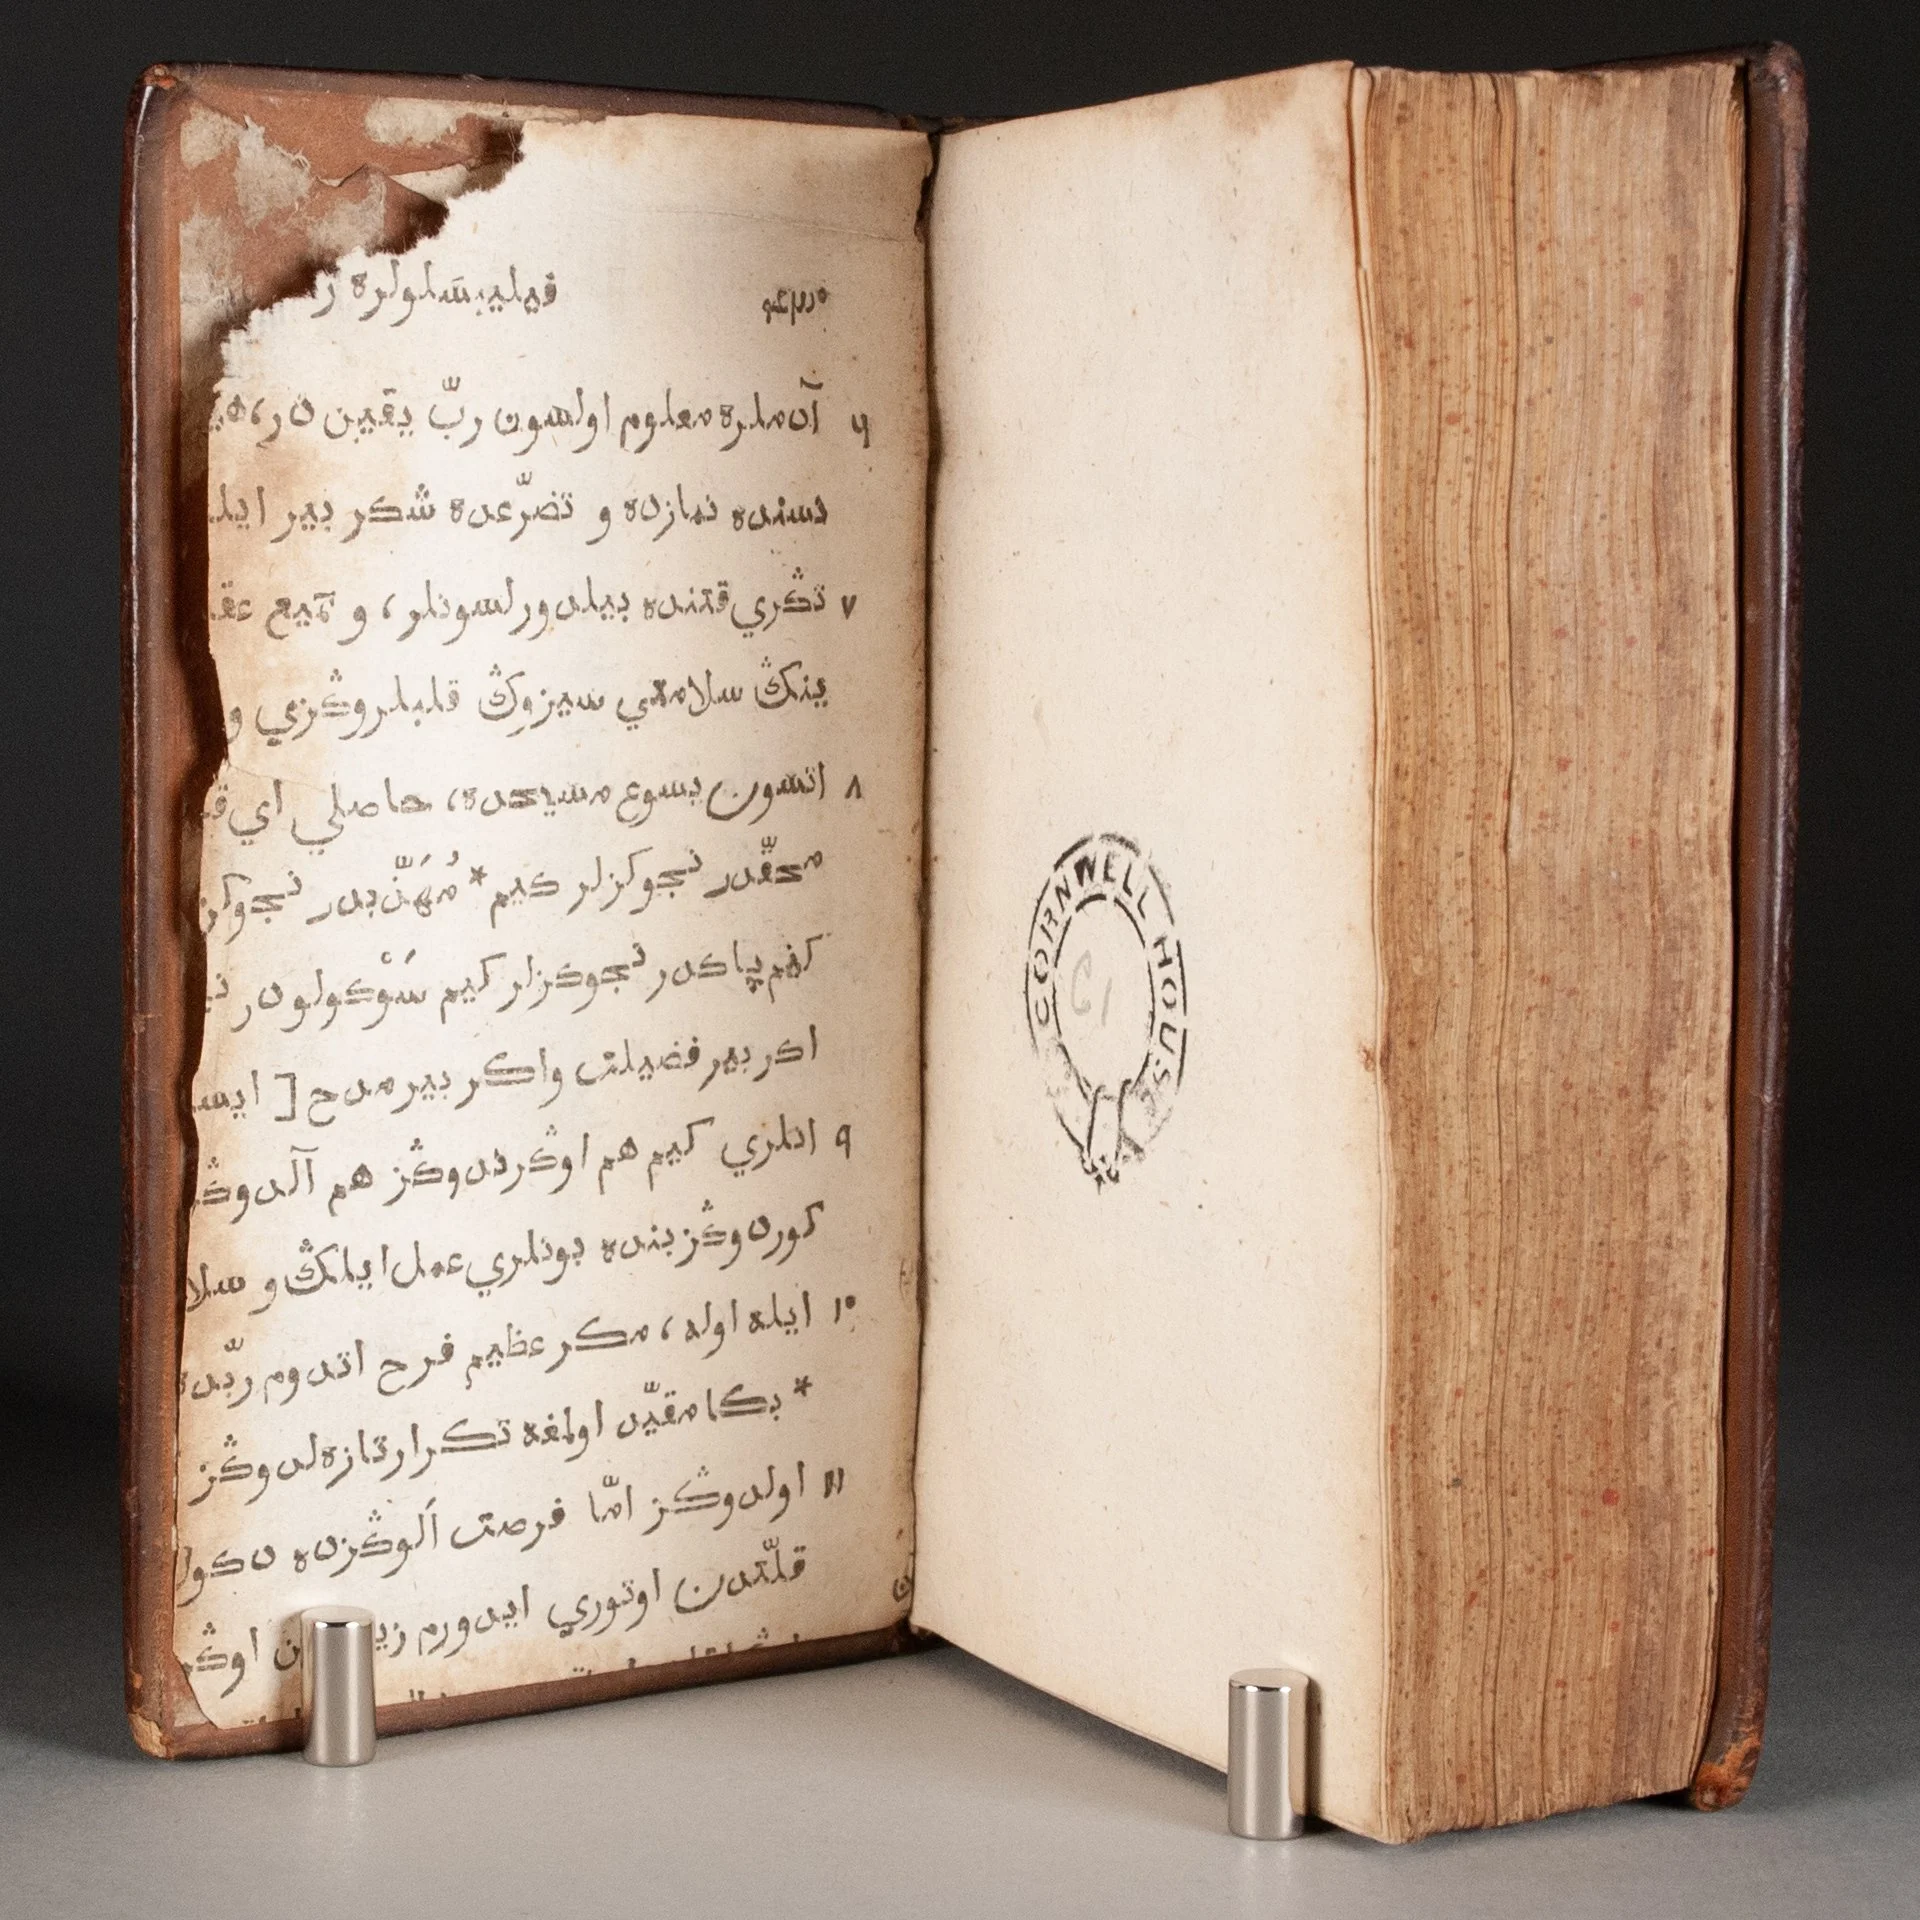 فيليبسلولره
٦ آدملره معلوم اولسون ربّ يقيندر،
نسنده نمازده و تضرّعده شكر بير ايله
٧ تڭري قتنده بيلدورلسونلر، و جميع
ينكڭ سلامتي سيزوكڭ قلبلروڭزي و
٨ اتسون يسوع مسيحده، حاصلي اي
محقّدر نجوكزلر كيم *
كيم پاكدر نجوكزلر كيم سَوْكولودر
اكر بير فضيلت واكر بير مدح [
٩ انلري كيم هم اوڭرندوڭز هم آلدوڭز
كوردوڭز بنده بونلري عمل ايلڭ و سلا
١٠ ايله اوله، مكر عظيم فرح اتدوم ربّده
* بكا مقيّد اولمغه تكرار تازه لدوڭز
١١ اولدوڭز امّا فرصت آلوڭزده دكول
قلّتدن اوتوري ايدورم
CORNWELL HOUSE